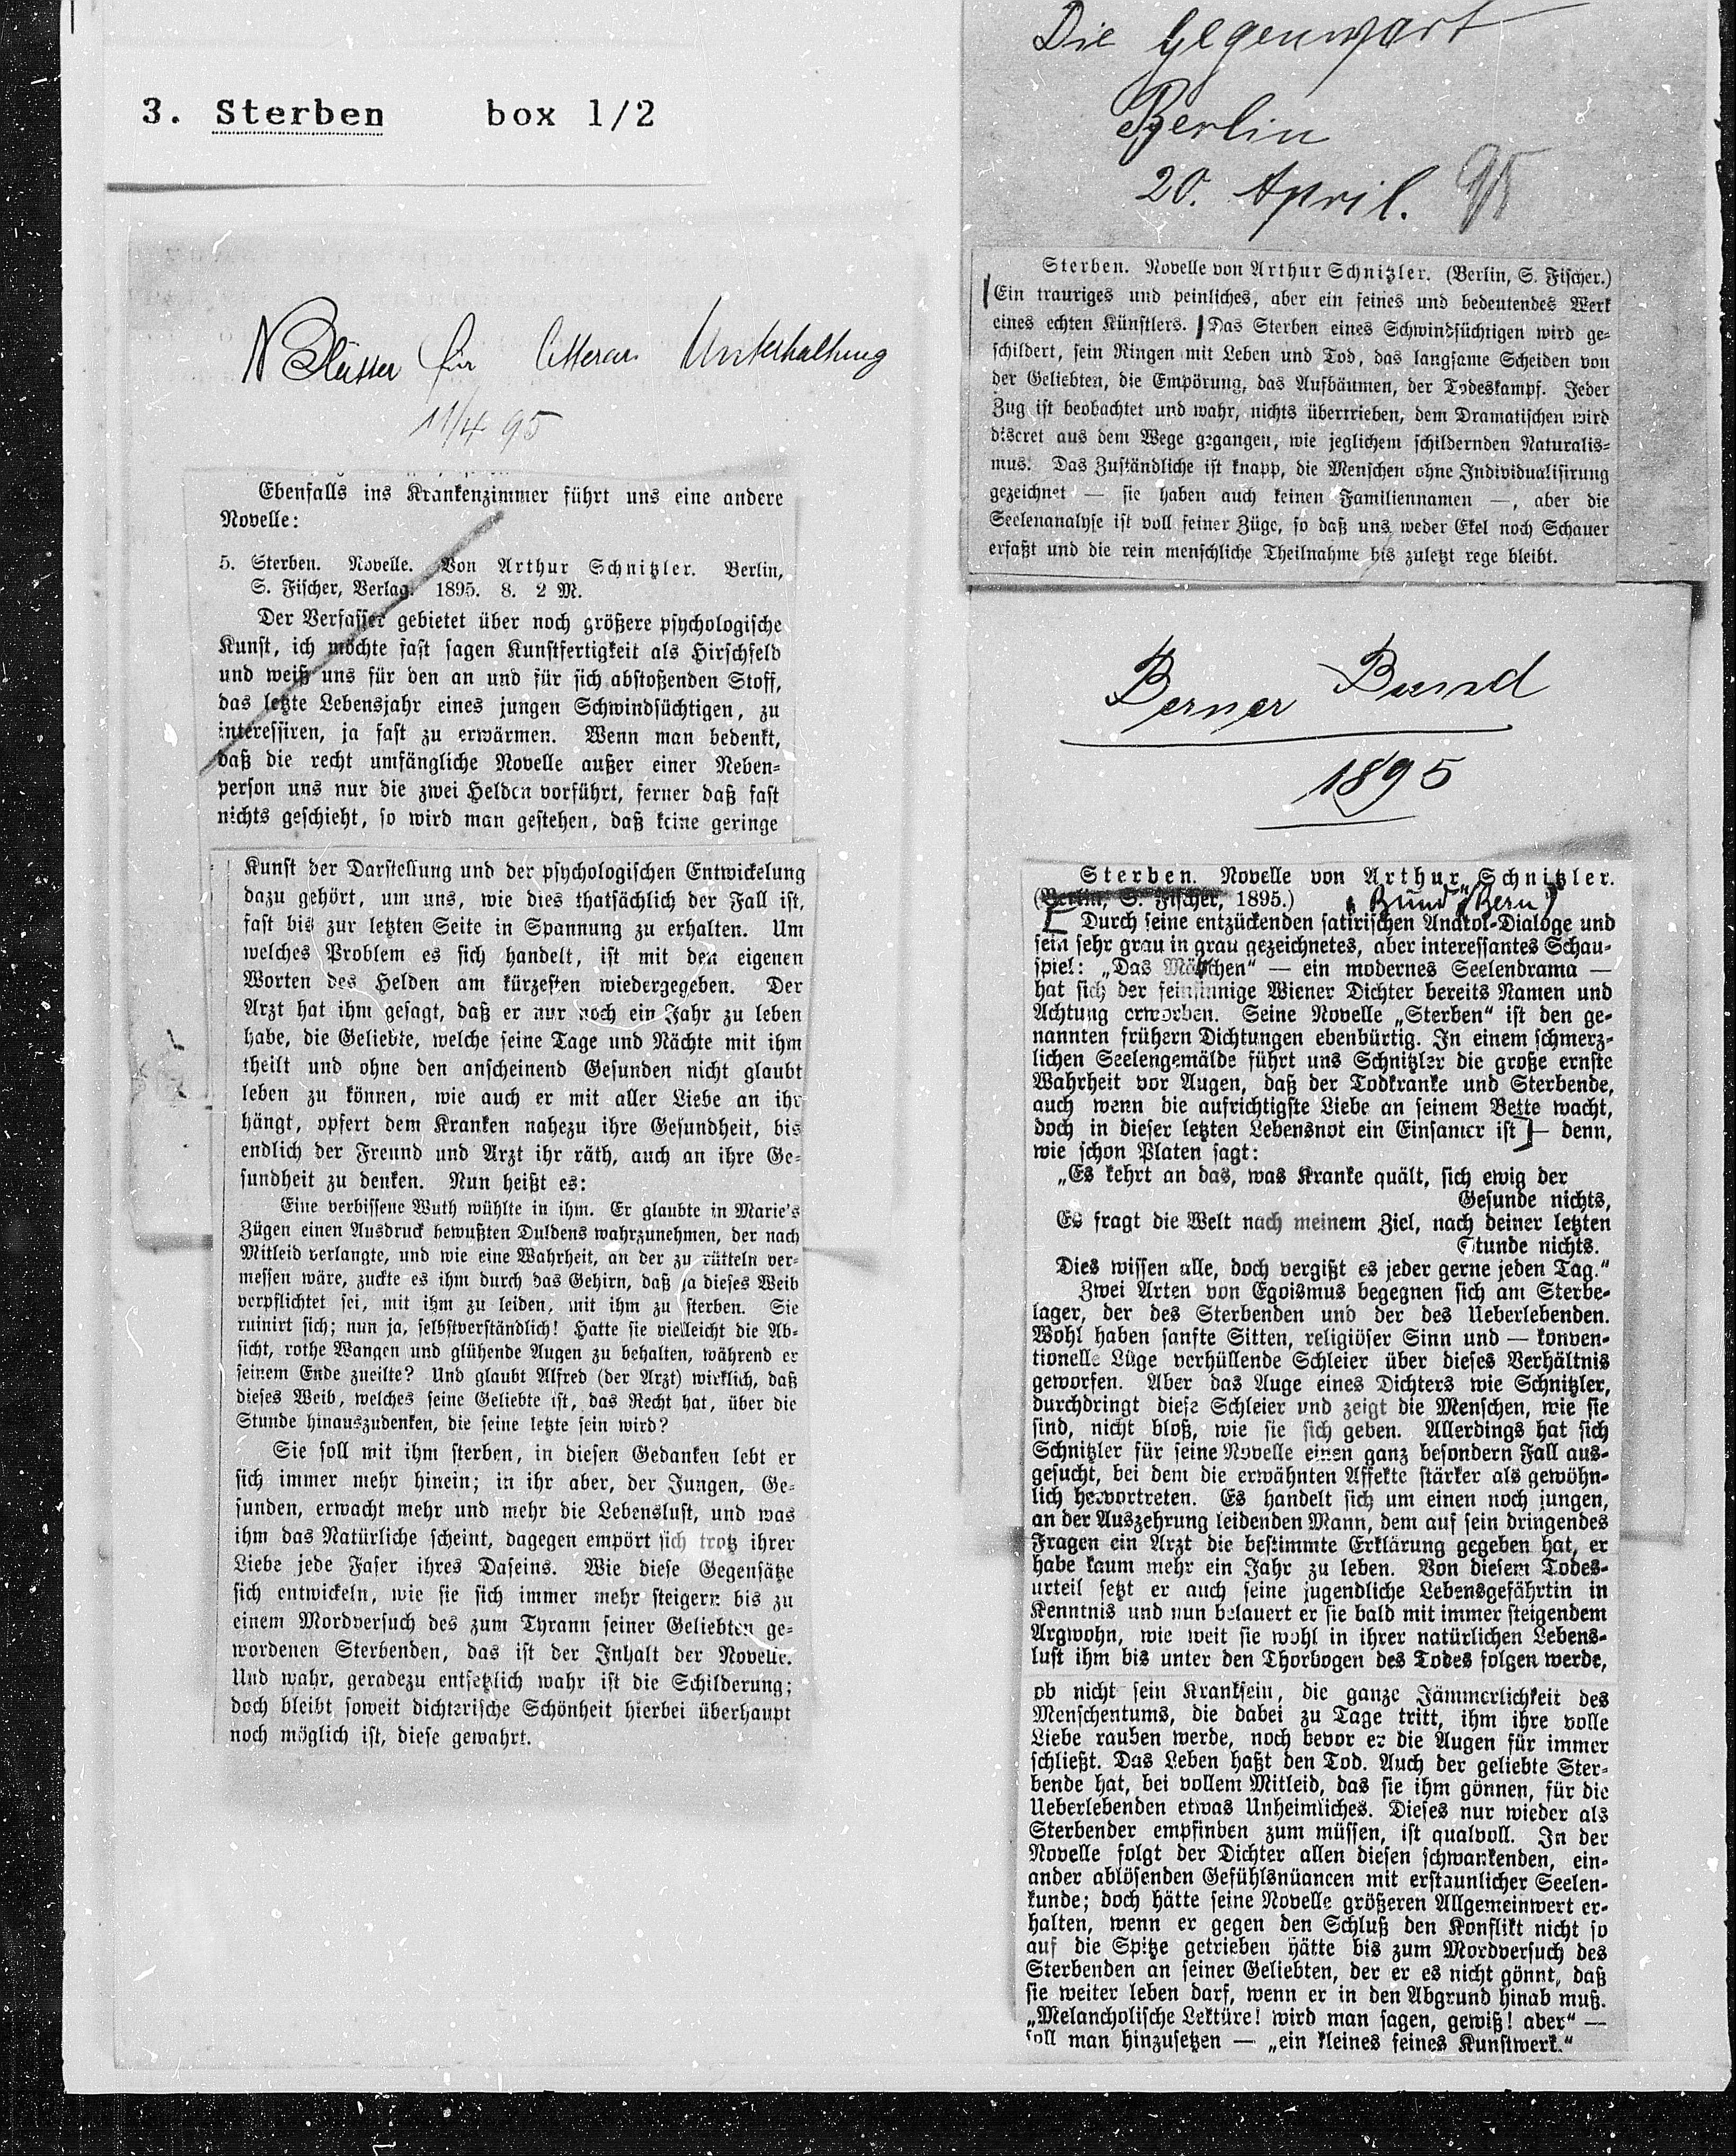 3. Sterben box 1/2
Blätter für litterar. Unterhaltung
11/4 95
Ebenfalls ins Krankenzimmer führt uns eine andere
Novelle:
5. Sterben. Novelle. Von Arthur Schnitzler. Berlin,
S. Fischer, Verlag. 1895. 8. 2 M.
Der Verfasser gebietet über noch größere psychologische
Kunst, ich möchte fast sagen Kunstfertigkeit als Hirschfeld
und weiß uns für den an und für sich abstoßenden Stoff,
das letzte Lebensjahr eines jungen Schwindsüchtigen, zu
interessiren, ja fast zu erwärmen. Wenn man bedenkt,
daß die recht umfängliche Novelle außer einer Neben-
person uns nur die zwei Helden vorführt, ferner daß fast
nichts geschieht, so wird man gestehen, daß keine geringe
Kunst der Darstellung und der psychologischen Entwickelung
dazu gehört, um uns, wie dies thatsächlich der Fall ist,
fast bis zur letzten Seite in Spannung zu erhalten. Um
welches Problem es sich handelt, ist mit den eigenen
Worten des Helden am kürzesten wiedergegeben. Der
Arzt hat ihm gesagt, daß er nur noch ein Jahr zu leben
habe, die Geliebte, welche seine Tage und Nächte mit ihm
theilt und ohne den anscheinend Gesunden nicht glaubt
leben zu können, wie auch er mit aller Liebe an ihr
hängt, opfert dem Kranken nahezu ihre Gesundheit, bis
endlich der Freund und Arzt ihr räth, auch an ihre Ge-
sundheit zu denken. Nun heißt es:
Eine verbissene Wuth wühlte in ihm. Er glaubte in Marie's
Zügen einen Ausdruck bewußten Duldens wahrzunehmen, der nach
Mitleid verlangte, und wie eine Wahrheit, an der zu rütteln ver-
messen wäre, zuckte es ihm durch das Gehirn, daß ja dieses Weib
verpflichtet sei, mit ihm zu leiden, mit ihm zu sterben. Sie
ruinirt sich; nun ja, selbstverständlich! Hatte sie vielleicht die Ab-
sicht, rothe Wangen und glühende Augen zu behalten, während er
seinem Ende zueilte? Und glaubt Alfred (der Arzt) wirklich, daß
dieses Weib, welches seine Geliebte ist, das Recht hat, über die
Stunde hinauszudenken, die seine letzte sein wird?
Sie soll mit ihm sterben, in diesen Gedanken lebt er
sich immer mehr hinein; in ihr aber, der Jungen, Ge-
sunden, erwacht mehr und mehr die Lebenslust, und was
ihm das Natürliche scheint, dagegen empört sich trotz ihrer
Liebe jede Faser ihres Daseins. Wie diese Gegensätze
sich entwickeln, wie sie sich immer mehr steigern bis zu
einem Mordversuch des zum Tyrann seiner Geliebten ge-
wordenen Sterbenden, das ist der Inhalt der Novelle.
Und wahr, geradezu entsetzlich wahr ist die Schilderung;
doch bleibt soweit dichterische Schönheit hierbei überhaupt
noch möglich ist, diese gewahrt.
Die Gegenwart
Berlin
20. April. 95
Sterben. Novelle von Arthur Schnitzler. (Berlin, S. Fischer.)
Ein trauriges und peinliches, aber ein feines und bedeutendes Werk
eines echten Künstlers. Das Sterben eines Schwindsüchtigen wird ge-
schildert, sein Ringen mit Leben und Tod, das langsame Scheiden von
der Geliebten, die Empörung, das Aufbäumen, der Todeskampf. Jeder
Zug ist beobachtet und wahr, nichts übertrieben, dem Dramatischen wird
discret aus dem Wege gegangen, wie jeglichem schildernden Naturalis-
mus. Das Zuständliche ist knapp, die Menschen ohne Individualisirung
gezeichnet — sie haben auch keinen Familiennamen —, aber die
Seelenanalyse ist voll feiner Züge, so daß uns weder Ekel noch Schauer
erfaßt und die rein menschliche Theilnahme bis zuletzt rege bleibt.
Berner Bund
1895
Sterben. Novelle von Arthur Schnitzler.
(Berlin, S. Fischer, 1895.) „Bund" (Bern)
Durch seine entzückenden satirischen Anatol-Dialoge und
sein sehr grau in grau gezeichnetes, aber interessantes Schau-
spiel: „Das Märchen" — ein modernes Seelendrama —
hat sich der feinsinnige Wiener Dichter bereits Namen und
Achtung erworben. Seine Novelle „Sterben" ist den ge-
nannten frühern Dichtungen ebenbürtig. In einem schmerz-
lichen Seelengemälde führt uns Schnitzler die große ernste
Wahrheit vor Augen, daß der Todkranke und Sterbende,
auch wenn die aufrichtigste Liebe an seinem Bette wacht,
doch in dieser letzten Lebensnot ein Einsamer ist — denn,
wie schon Platen sagt:
„Es kehrt an das, was Kranke quält, sich ewig der
Gesunde nichts,
Es fragt die Welt nach meinem Ziel, nach deiner letzten
Stunde nichts.
Dies wissen alle, doch vergißt es jeder gerne jeden Tag."
Zwei Arten von Egoismus begegnen sich am Sterbe-
lager, der des Sterbenden und der des Ueberlebenden.
Wohl haben sanfte Sitten, religiöser Sinn und — konven-
tionelle Lüge verhüllende Schleier über dieses Verhältnis
geworfen. Aber das Auge eines Dichters wie Schnitzler,
durchdringt diese Schleier und zeigt die Menschen, wie sie
sind, nicht bloß, wie sie sich geben. Allerdings hat sich
Schnitzler für seine Novelle einen ganz besondern Fall aus-
gesucht, bei dem die erwähnten Affekte stärker als gewöhn-
lich hervortreten. Es handelt sich um einen noch jungen,
an der Auszehrung leidenden Mann, dem auf sein dringendes
Fragen ein Arzt die bestimmte Erklärung gegeben hat, er
habe kaum mehr ein Jahr zu leben. Von diesem Todes-
urteil setzt er auch seine jugendliche Lebensgefährtin in
Kenntnis und nun belauert er sie bald mit immer steigendem
Argwohn, wie weit sie wohl in ihrer natürlichen Lebens-
lust ihm bis unter den Thorbogen des Todes folgen werde,
ob nicht sein Kranksein, die ganze Jämmerlichkeit des
Menschentums, die dabei zu Tage tritt, ihm ihre volle
Liebe rauben werde, noch bevor er die Augen für immer
schließt. Das Leben haßt den Tod. Auch der geliebte Ster-
bende hat, bei vollem Mitleid, das sie ihm gönnen, für die
Ueberlebenden etwas Unheimliches. Dieses nur wieder als
Sterbender empfinden zum müssen, ist qualvoll. In der
Novelle folgt der Dichter allen diesen schwankenden, ein-
ander ablösenden Gefühlsnüancen mit erstaunlicher Seelen-
kunde; doch hätte seine Novelle größeren Allgemeinwert er-
halten, wenn er gegen den Schluß den Konflikt nicht so
auf die Spitze getrieben hätte bis zum Mordversuch des
Sterbenden an seiner Geliebten, der er es nicht gönnt, daß
sie weiter leben darf, wenn er in den Abgrund hinab muß.
„Melancholische Lektüre! wird man sagen, gewiß! aber" —
soll man hinzusetzen — „ein kleines feines Kunstwerk."